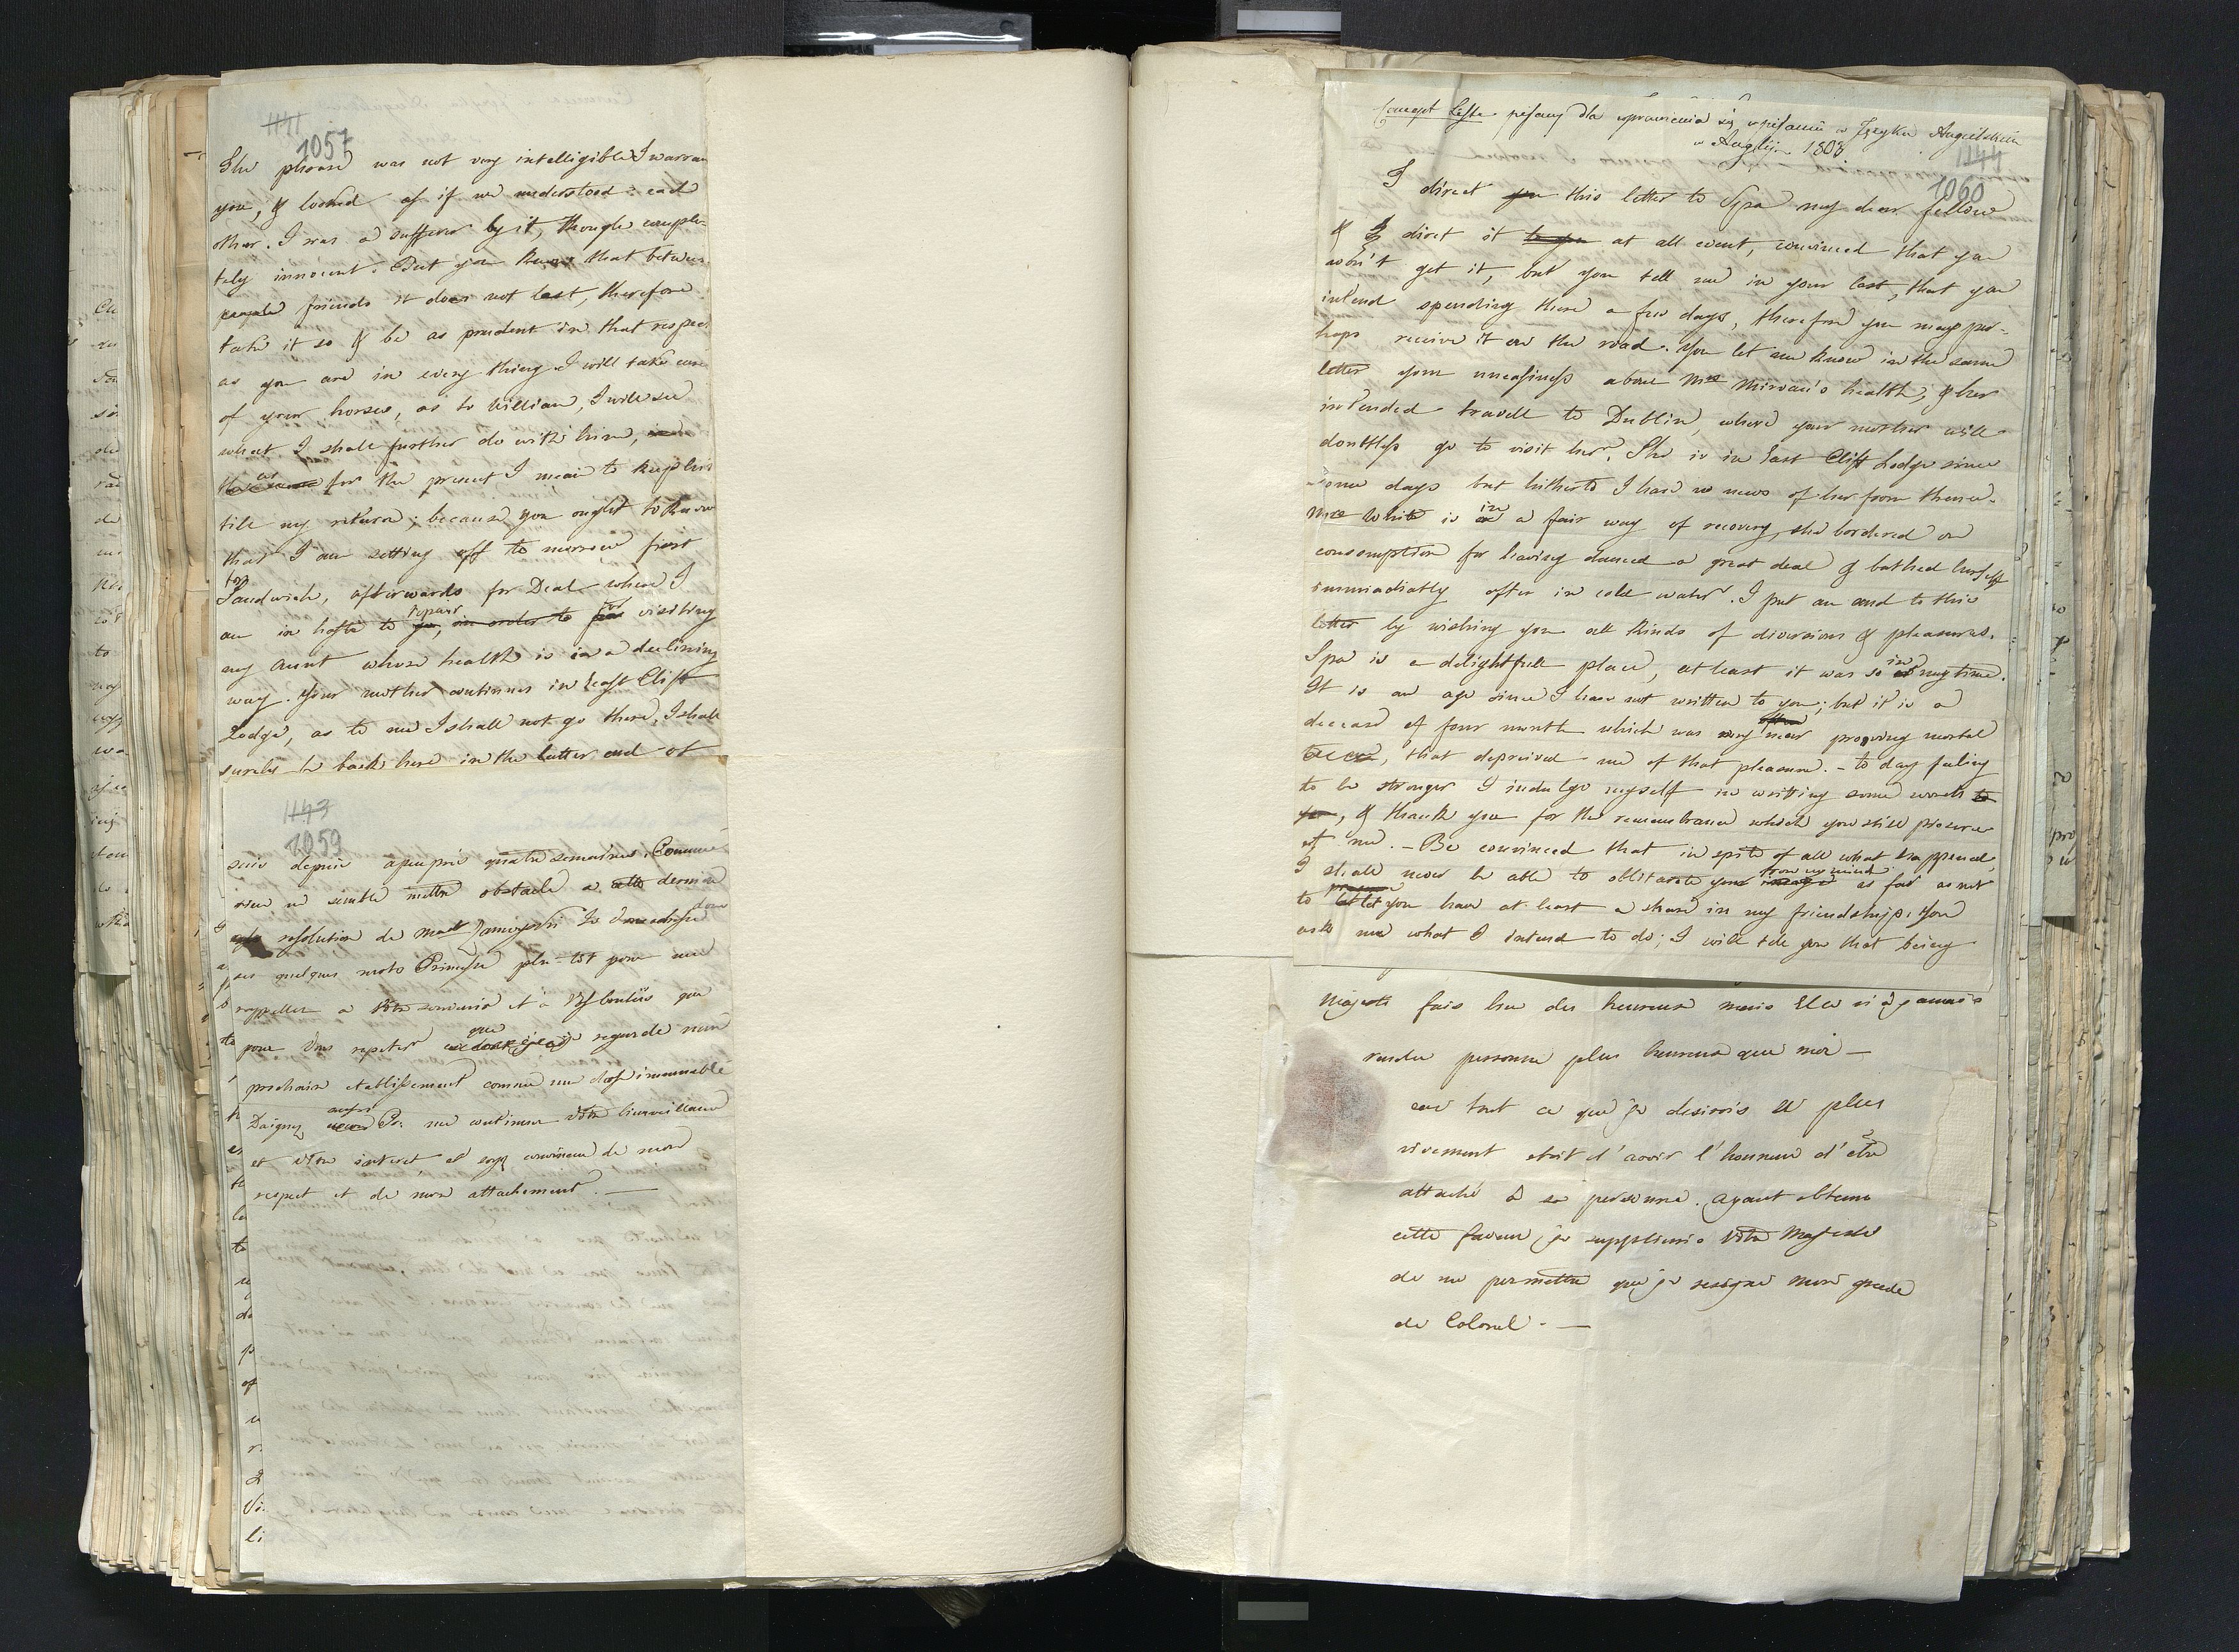 1141
1057
The phrase was not very intelligible I warran
you, & looked as if we understood each
other. I was a sufferer by it, though comple-
tely innocent. But you know that between
people friends it does not last, therefore
take it so & be as prudent in that respec
as you are in every thing I will take care
of your horses, as to William, I will see
what I shall further do with him,
as for the present I mean to keep him
till my return; because you ought to know
that I am setting off to morrow first
for
Sandwich, afterwards for Deal where I
repair for
am in haste to go, in order to visiting
my aunt whose health is in a declining
way. Your mother continues in East Clift
Lodge, as to me I shall not go there, I shall
surely be back here in the latter end of
1143
1059
suis depuis apeuprès quatre semaines. Comme
rien ne semble mettre obstacle a cette derniere
resolution de Mad Zamoyski Je donc
ces quelques mots Princesse plu-tot pour me
rappeller a Votre souvenir et a Vos bontés que
que
pour Vous repeter je regarde mon
prochain etablissement comme une chose immuable
Daignez Pr. me continuer Votre bienveillance
et Votre interet, et soyez convaincue de mon
respect et de mon attachement. —
Concept Lista pisany dla wprawienia się w pisaniu w Języku Angielskim
w Anglij 1803.
1144
1060
I direct you this letter to Spa my dear fellow
& I direct it to you at all event, convinced that you
won't get it, but you tell me in your last, that you
intend spending there a few days, therefore you may per-
haps receive it on the road. You let me know in the same
letter your uneasiness about Mrs Mirvan's health, & her
intended travell to Dublin, where your mother will
doubtless go to visit her. She is in East Clift Lodge since
some days but hitherto I have no news of her from thence.
in
Mrs White is in a fair way of recovery, she bordered on
consomption for having danced a great deal & bathed herself
immediatly after in cold water. I put an end to this
letter by wishing you all kinds of diversions & pleasures.
in
Spa is a delightfull place, at least it was so at my time.
It is an age since I have not written to you; but it is a
decease of four month which was very near prooving mortal
to me, that deprived me of that pleasure. – to day feeling
to be stronger I indulge myself in writting some words to
you, & thank you for the remembrance which you still preserve
of me. – Be convinced that in spite of all what happened,
from my mind
I shall never be able to obliterate your image as far as not
to let you have at least a share in my friendship. You
ask me what I intend to do; I will tell you that being
Majesté fais bien des heureux mais Elle n'a jamais
rendu personne plus heureux que moi —
car tout ce que je desirois le plus
vivement etoit d'avoir l'honneur d'être
attaché à sa personne. ayant obtenu
cette faveur je supplierai Votre Majesté
de me permettre que je resigne mon grade
de Colonel. —